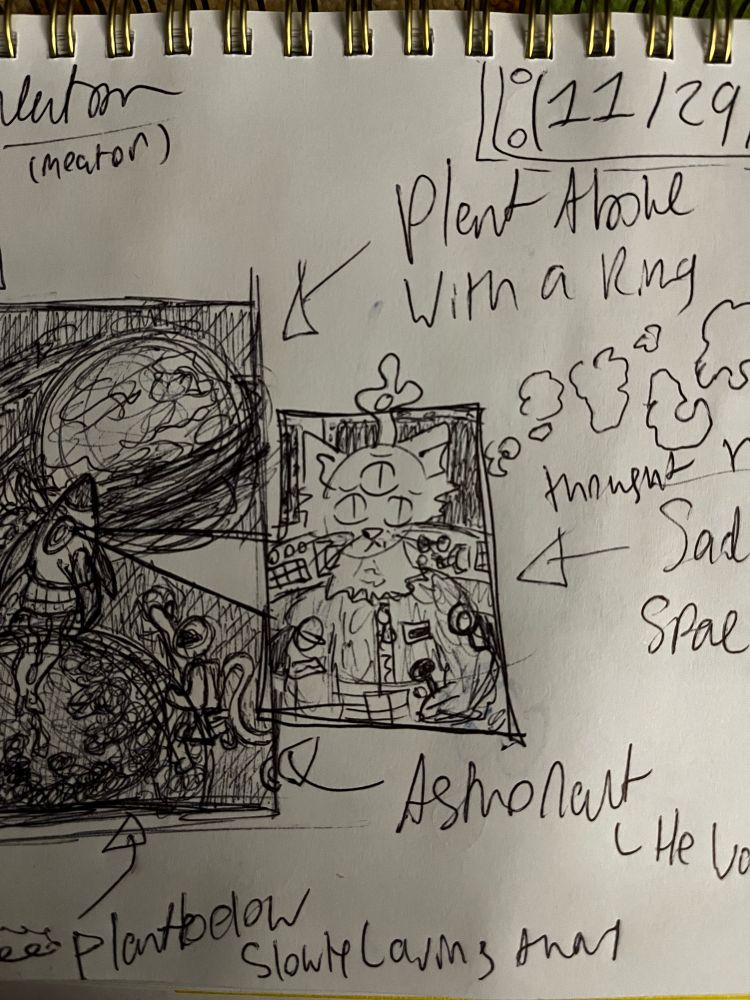 (meator)
(11/29
Plent Above
With a Ring
thought
Sad
Spac
Astronaut
(He
Plantbelow
Slowly